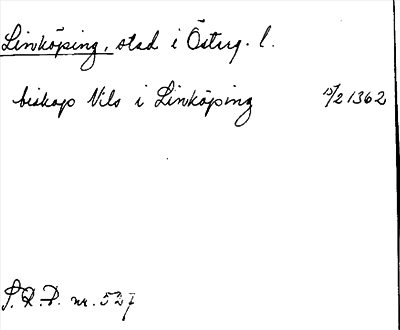 Linköping, stad i Östrg. l.
biskop Nils i Linköping 15/2 1362
S.R.P. nr. 527